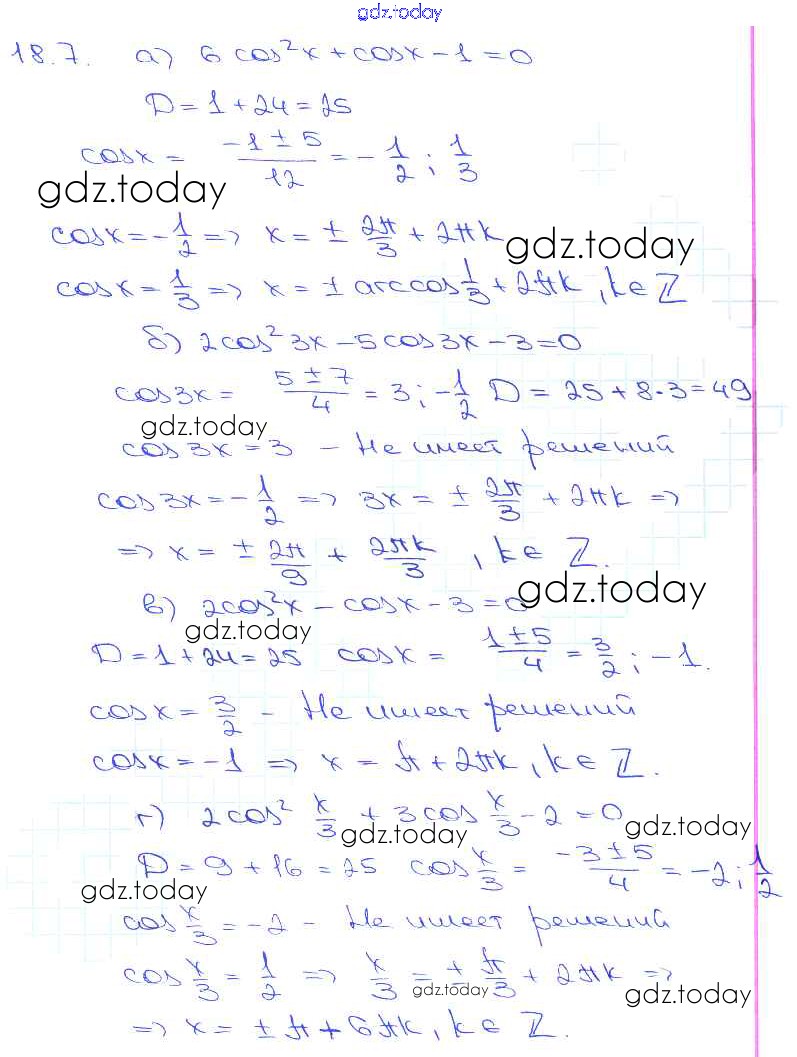 gdz.today
18.7. а) 6 cos²x + cosx − 1 = 0
D = 1 + 24 = 25
cosx = (−1 ± 5)/12 = −1/2 ; 1/3
gdz.today
cosx = −1/2 => x = ± 2π/3 + 2πk gdz.today
cosx = 1/3 => x = ± arccos 1/3 + 2πk , k ∈ ℤ
б) 2cos² 3x − 5cos3x − 3 = 0
cos3x = (5 ± 7)/4 = 3 ; −1/2 D = 25 + 8·3 = 49
gdz.today
cos3x = 3 − Не имеет решений
cos3x = −1/2 => 3x = ± 2π/3 + 2πk =>
gdz.today
=> x = ± 2π/9 + 2πk/3 , k ∈ ℤ.
gdz.today
в) 2cos²x − cosx − 3 = 0
gdz.today
D = 1 + 24 = 25 cosx = (1 ± 5)/4 = 3/2 ; −1.
cosx = 3/2 − Не имеет решений
cosx = −1 => x = π + 2πk , k ∈ ℤ.
г) 2cos² x/3 + 3cos x/3 − 2 = 0
gdz.today gdz.today
D = 9 + 16 = 25 cos x/3 = (−3 ± 5)/4 = −2 ; 1/2
gdz.today
cos x/3 = −2 − Не имеет решений
cos x/3 = 1/2 => x/3 = ± π/3 + 2πk =>
gdz.today gdz.today
=> x = ± π + 6πk, k ∈ ℤ.